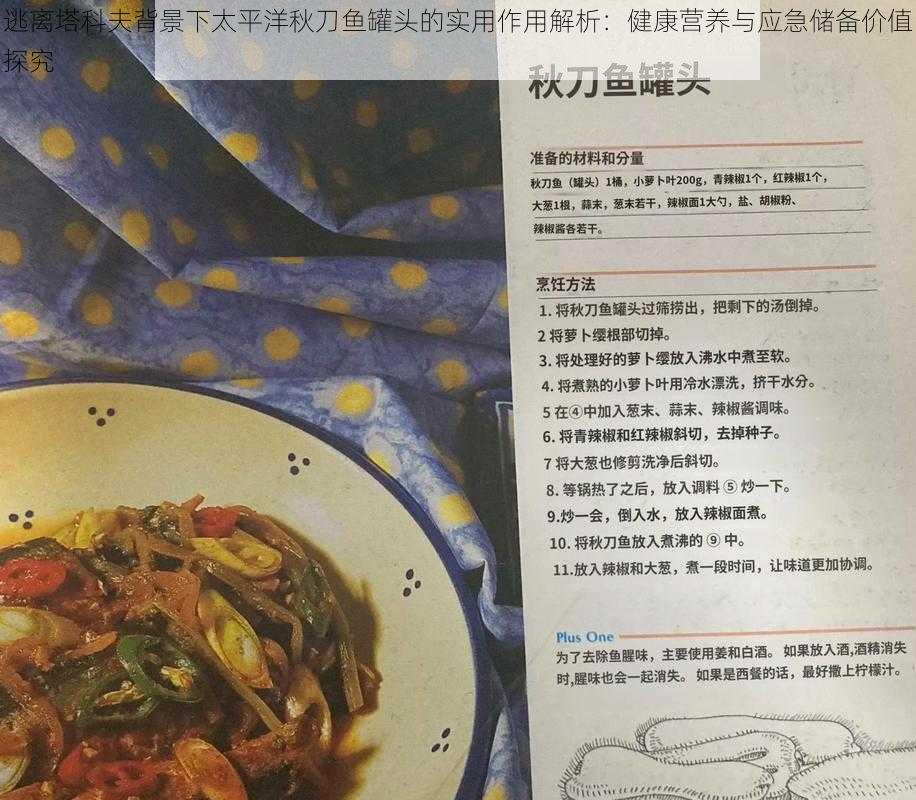 逃离塔科夫背景下太平洋秋刀鱼罐头的实用作用解析：健康营养与应急储备价值
探究
秋刀鱼罐头
准备的材料和分量
秋刀鱼（罐头）1桶，小萝卜叶200g，青辣椒1个，红辣椒1个，
大葱1根，蒜末，葱末若干，辣椒面1大勺，盐、胡椒粉、
辣椒酱各若干。
烹饪方法
1. 将秋刀鱼罐头过筛捞出，把剩下的汤倒掉。
2 将萝卜缨根部切掉。
3. 将处理好的萝卜缨放入沸水中煮至软。
4. 将煮熟的小萝卜叶用冷水漂洗，挤干水分。
5 在④中加入葱末、蒜末、辣椒酱调味。
6. 将青辣椒和红辣椒斜切，去掉种子。
7 将大葱也修剪洗净后斜切。
8. 等锅热了之后，放入调料 ⑤ 炒一下。
9.炒一会，倒入水，放入辣椒面煮。
10. 将秋刀鱼放入煮沸的 ⑨ 中。
11.放入辣椒和大葱，煮一段时间，让味道更加协调。
Plus One
为了去除鱼腥味，主要使用姜和白酒。 如果放入酒,酒精消失
时,腥味也会一起消失。 如果是西餐的话，最好撒上柠檬汁。